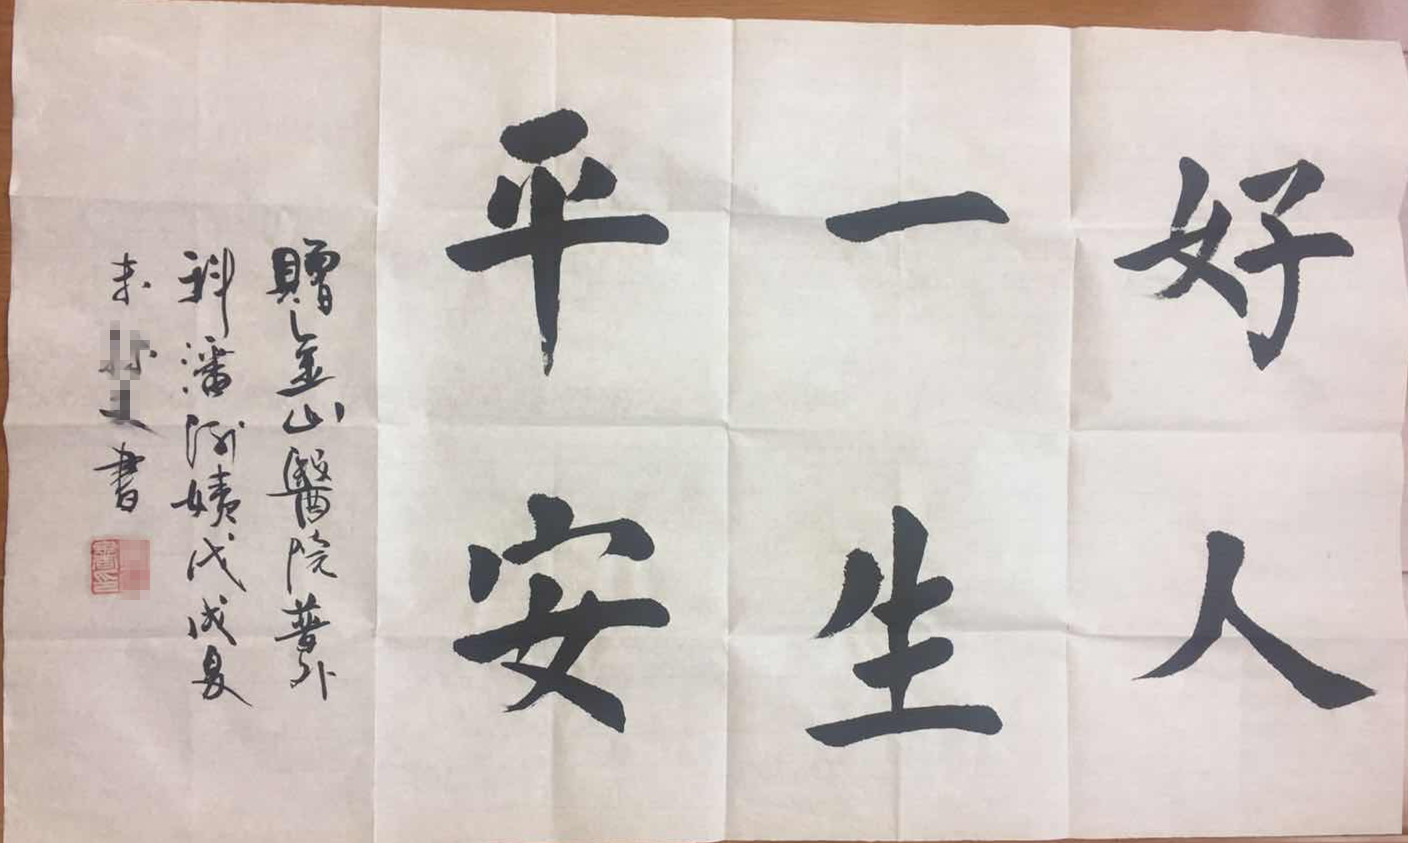 好人
一生
平安
贈金山醫院普外
科潘阿姨戊戌夏
書